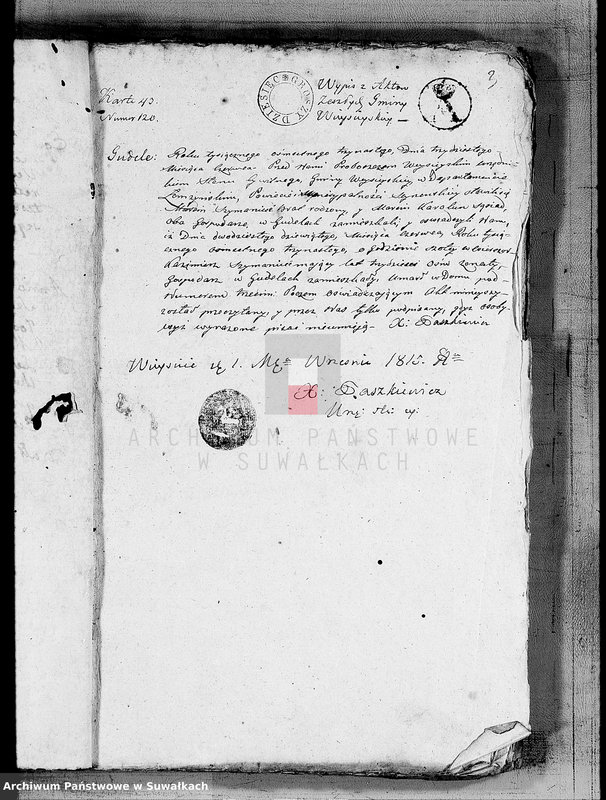 3
Karta 43.
Numer 120.
DZIESIĘC GROSZY
Wypis z Aktów
Zeszłych Gminy
Wieysieyskiey —
Gudele: Roku tysiącznego osmsetnego trzynastego, Dnia trzydziestego
Miesiąca Czerwca Przed Nami Proboszczem Weysieyskim
Stanu Cywilnego, Gminy Weysieyskiey, w Departamencie
Łomżynskim, Powiecie
Szymaniść Brat rodzony, y Marcin Karolun Sąsiad
oba Gospodarze, w Gudelach zamieszkali, y oswiadczyli Nam,
iż Dnia dwudziestego dziewiątego, Miesiąca Czerwca, Roku tysią-
cznego osmsetnego trzynastego, o godzinie szostey wieczor
Kazimierz Szymaniść maiący lat trzydzieści osm żonaty,
Gospodarz w Gudelach zamieszkały, Umarł w Domu pod
Numerem trzecim. Poczem oswiadczaiącym Akt ninieyszy
został przeczytany, y przez Nas tylko podpisany, gdyż osoby
wyrażone pisać nieumieią — X: Paszkiewicz
Wieysieie d. 1. Września 181
X: Paszkiewicz
Urz: st: cy:
ARCHIWUM PAŃSTWOWE
W SUWAŁKACH
Archiwum Państwowe w Suwałkach